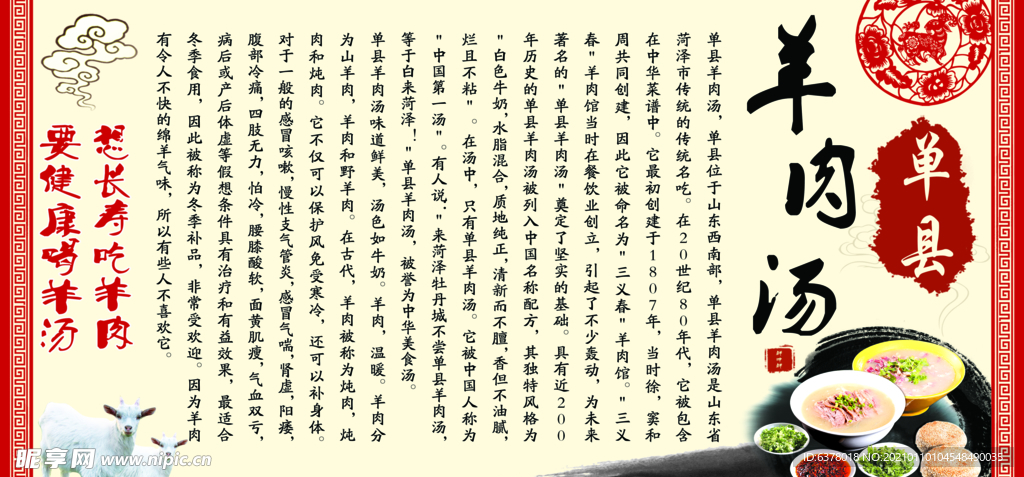 单县
羊肉汤
单县羊肉汤，单县位于山东西南部，单县羊肉汤是山东省
菏泽市传统的传统名吃。在20世纪80年代，它被包含
在中华菜谱中。它最初创建于1807年，当时徐，窦和
周共同创建，因此它被命名为"三义春"羊肉馆。"三义
春"羊肉馆当时在餐饮业创立，引起了不少轰动，为未来
著名的"单县羊肉汤"奠定了坚实的基础。具有近200
年历史的单县羊肉汤被列入中国名称配方，其独特风格为
"白色牛奶，水脂混合，质地纯正，清新而不膻，香但不油腻，
烂且不粘"。在汤中，只有单县羊肉汤。它被中国人称为
"中国第一汤"。有人说："来菏泽牡丹城不尝单县羊肉汤，
等于白来菏泽！"单县羊肉汤，被誉为中华美食汤。
单县羊肉汤味道鲜美，汤色如牛奶。羊肉，温暖。羊肉分
为山羊肉，羊肉和野羊肉。在古代，羊肉被称为炖肉，炖
肉和炖肉。它不仅可以保护风免受寒冷，还可以补身体。
对于一般的感冒咳嗽，慢性支气管炎，感冒气喘，肾虚，阳痿，
腹部冷痛，四肢无力，怕冷，腰膝酸软，面黄肌瘦，气血两亏，
病后或产后体虚等假想条件具有治疗和有益效果，最适合
冬季食用，因此被称为冬季补品，非常受欢迎。因为羊肉
有令人不快的绵羊气味，所以有些人不喜欢它。
想长寿吃羊肉
要健康喝羊汤
昵享网 www.nipic.cn
ID:6378018 NO:20210110104548490035